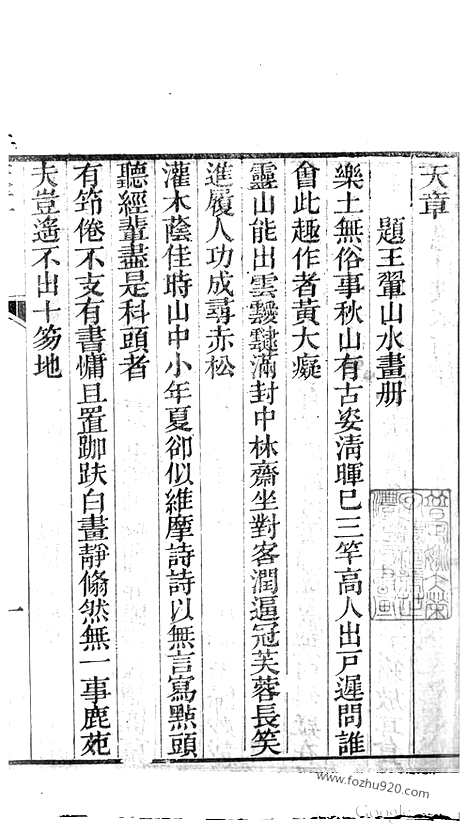 天章
題王翬山水畫册
樂土無俗事秋山有古姿淸暉巳三竿高人出戸遲問誰
會此趣作者黃大癡
靈山能出雲靉靆滿封中林齋坐對客潤逼冠芙蓉長笑
進履人功成尋赤松
灌木蔭佳時山中小年夏卻似維摩詩詩以無言寫點頭
聽經輩盡是科頭者
有筇倦不支有書慵且置跏趺白晝靜翛然無一事鹿苑
夫豈遙不出十笏地
一
www.fozhu920.com
Google